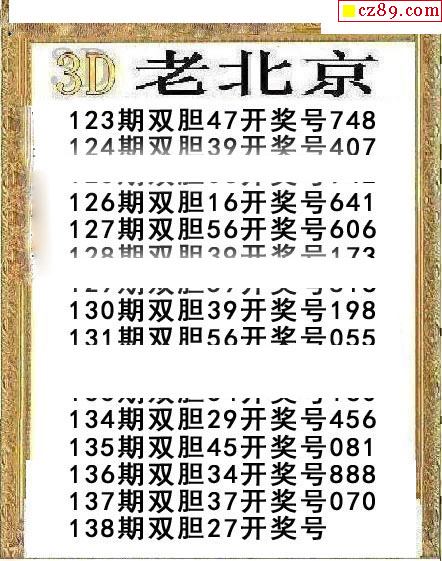 cz89.com
3D 老北京
123期双胆47开奖号748
124期双胆39开奖号407
126期双胆16开奖号641
127期双胆56开奖号606
128期双胆39开奖号173
130期双胆39开奖号198
131期双胆56开奖号055
134期双胆29开奖号456
135期双胆45开奖号081
136期双胆34开奖号888
137期双胆37开奖号070
138期双胆27开奖号